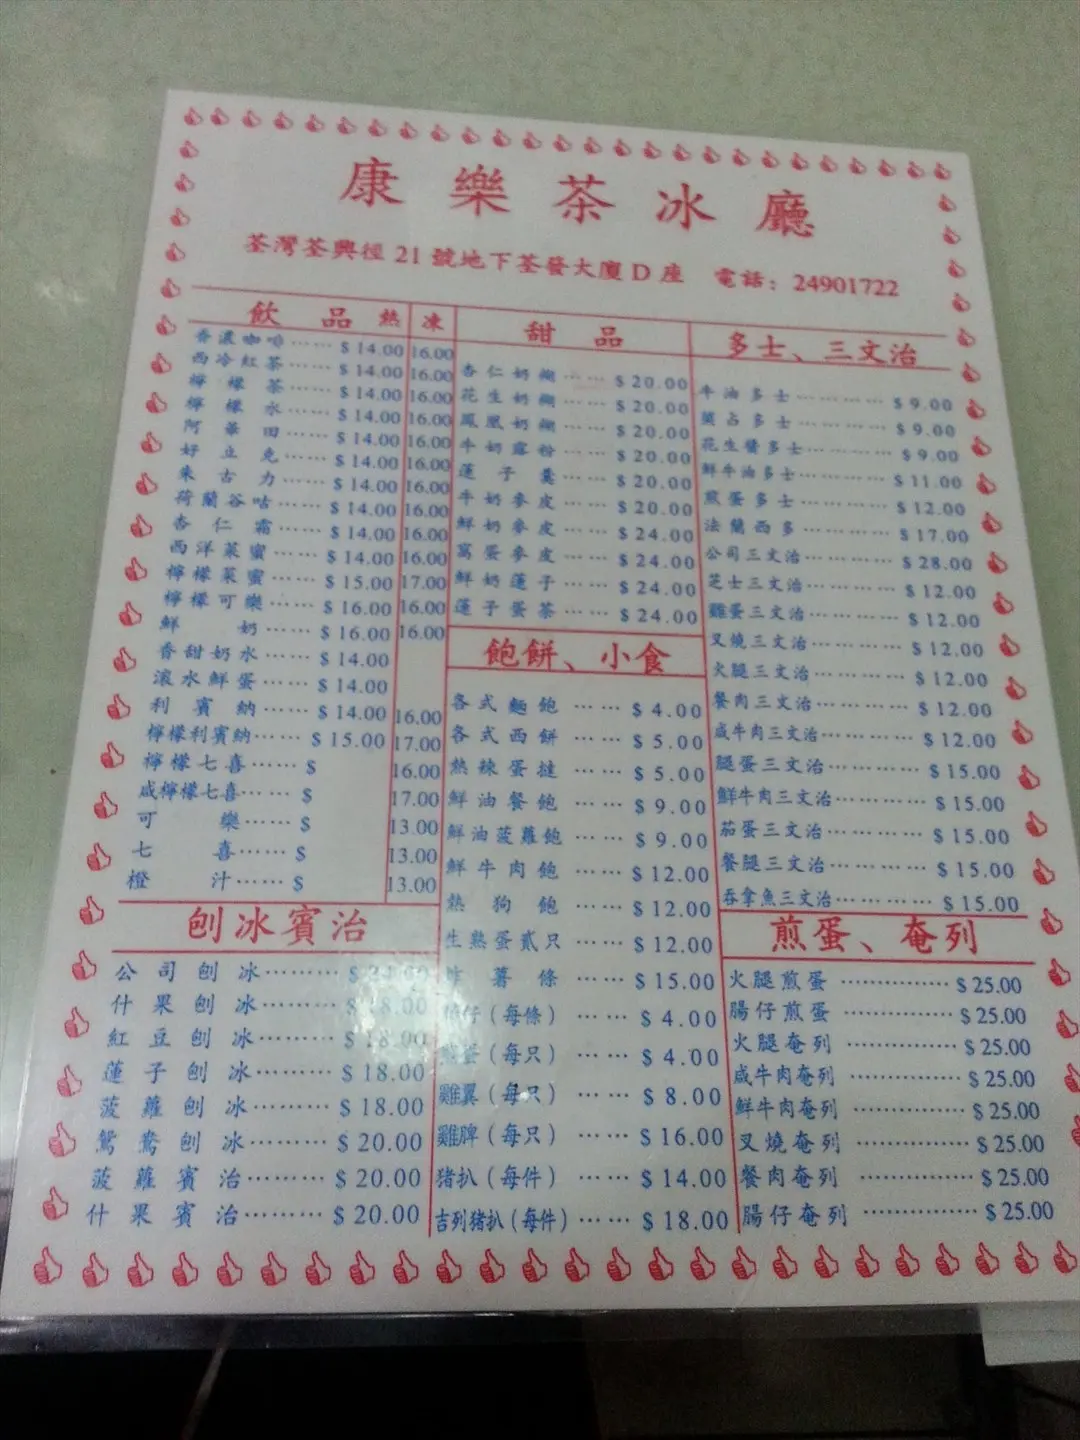 康樂茶冰廳
荃灣荃興徑21號地下荃發大廈D座 電話：24901722
飲品 熱 凍
香濃咖啡⋯⋯ $14.00 16.00
西冷紅茶⋯⋯ $14.00 16.00
檸檬茶⋯⋯ $14.00 16.00
檸檬水⋯⋯ $14.00 16.00
阿華田⋯⋯ $14.00 16.00
好立克⋯⋯ $14.00 16.00
朱古力⋯⋯ $14.00 16.00
荷蘭谷咕⋯⋯ $14.00 16.00
杏仁霜⋯⋯ $14.00 16.00
西洋菜蜜⋯⋯ $14.00 16.00
檸檬菜蜜⋯⋯ $15.00 17.00
檸檬可樂⋯⋯ $16.00 16.00
鮮奶⋯⋯ $16.00 16.00
香甜奶水⋯⋯ $14.00
滾水鮮蛋⋯⋯ $14.00
利賓納⋯⋯ $14.00 16.00
檸檬利賓納⋯⋯ $15.00 17.00
檸檬七喜⋯⋯ $ 16.00
咸檸檬七喜⋯⋯ $ 17.00
可樂⋯⋯ $ 13.00
七喜⋯⋯ $ 13.00
橙汁⋯⋯ $ 13.00
刨冰賓治
公司刨冰⋯⋯⋯
什果刨冰⋯⋯⋯ $18.00
紅豆刨冰⋯⋯⋯ $18.00
蓮子刨冰⋯⋯⋯ $18.00
菠蘿刨冰⋯⋯⋯ $18.00
鴛鴦刨冰⋯⋯⋯ $20.00
菠蘿賓治⋯⋯⋯ $20.00
什果賓治⋯⋯⋯ $20.00
甜品
杏仁奶糊⋯⋯ $20.00
花生奶糊⋯⋯ $20.00
鳳凰奶糊⋯⋯ $20.00
牛奶露粉⋯⋯ $20.00
蓮子羹⋯⋯ $20.00
牛奶麥皮⋯⋯ $20.00
鮮奶麥皮⋯⋯ $24.00
窩蛋麥皮⋯⋯ $24.00
鮮奶蓮子⋯⋯ $24.00
蓮子蛋茶⋯⋯ $24.00
飽餅、小食
各式麵飽⋯⋯ $4.00
各式西餅⋯⋯ $5.00
熱辣蛋撻⋯⋯ $5.00
鮮油餐飽⋯⋯ $9.00
鮮油菠蘿飽⋯⋯ $9.00
鮮牛肉飽⋯⋯ $12.00
熱狗飽⋯⋯ $12.00
生熟蛋貳只⋯⋯ $12.00
炸薯條⋯⋯ $15.00
腸仔（每條）⋯⋯ $4.00
煎蛋（每只）⋯⋯ $4.00
雞翼（每只）⋯⋯ $8.00
雞脾（每只）⋯⋯ $16.00
猪扒（每件）⋯⋯ $14.00
吉列猪扒（每件）⋯⋯ $18.00
多士、三文治
牛油多士⋯⋯⋯⋯ $9.00
菓占多士⋯⋯⋯⋯ $9.00
花生醬多士⋯⋯⋯⋯ $9.00
鮮牛油多士⋯⋯⋯⋯ $11.00
煎蛋多士⋯⋯⋯⋯ $12.00
法蘭西多⋯⋯⋯⋯ $17.00
公司三文治⋯⋯⋯⋯ $28.00
芝士三文治⋯⋯⋯⋯ $12.00
雞蛋三文治⋯⋯⋯⋯ $12.00
叉燒三文治⋯⋯⋯⋯ $12.00
火腿三文治⋯⋯⋯⋯ $12.00
餐肉三文治⋯⋯⋯⋯ $12.00
咸牛肉三文治⋯⋯⋯⋯ $12.00
腿蛋三文治⋯⋯⋯⋯ $15.00
鮮牛肉三文治⋯⋯⋯⋯ $15.00
茄蛋三文治⋯⋯⋯⋯ $15.00
餐腿三文治⋯⋯⋯⋯ $15.00
吞拿魚三文治⋯⋯⋯⋯ $15.00
煎蛋、奄列
火腿煎蛋⋯⋯⋯⋯⋯ $25.00
腸仔煎蛋⋯⋯⋯⋯⋯ $25.00
火腿奄列⋯⋯⋯⋯⋯ $25.00
咸牛肉奄列⋯⋯⋯⋯⋯ $25.00
鮮牛肉奄列⋯⋯⋯⋯⋯ $25.00
叉燒奄列⋯⋯⋯⋯⋯ $25.00
餐肉奄列⋯⋯⋯⋯⋯ $25.00
腸仔奄列⋯⋯⋯⋯⋯ $25.00